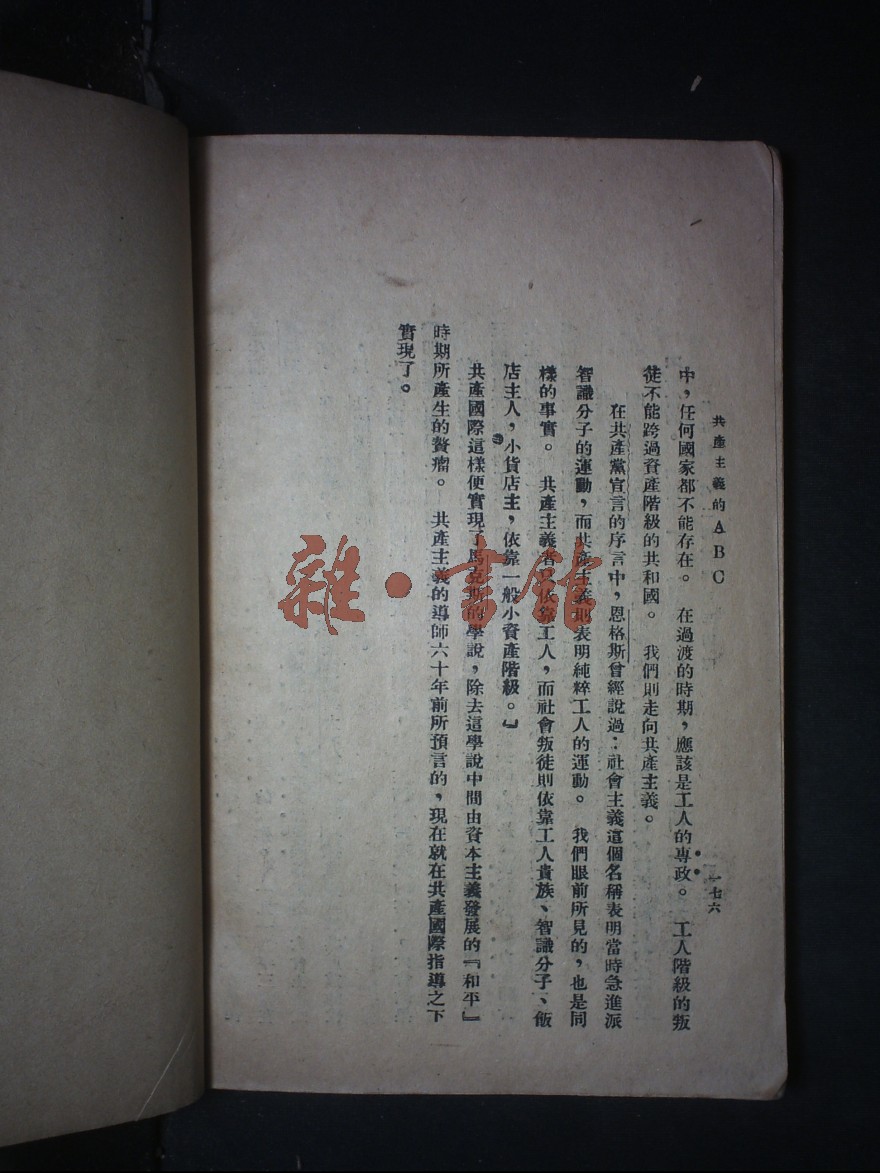 共產主義的ABC
一七六
中，任何國家都不能存在。 在過渡的時期，應該是工人的專政。 工人階級的叛
徒不能跨過資產階級的共和國。 我們則走向共產主義。
在共產黨宣言的序言中，恩格斯曾經說過：社會主義這個名稱表明當時急進派
智識分子的運動，而共產主義則表明純粹工人的運動。 我們眼前所見的，也是同
樣的事實。 共產主義者只依靠工人，而社會叛徒則依靠工人貴族、智識分子、飯
店主人，小貨店主，依靠一般小資產階級。』
共產國際這樣便實現了馬克斯的學說，除去這學說中間由資本主義發展的『和平』
時期所產生的贅瘤。 共產主義的導師六十年前所預言的，現在就在共產國際指導之下
實現了。
雜·書館